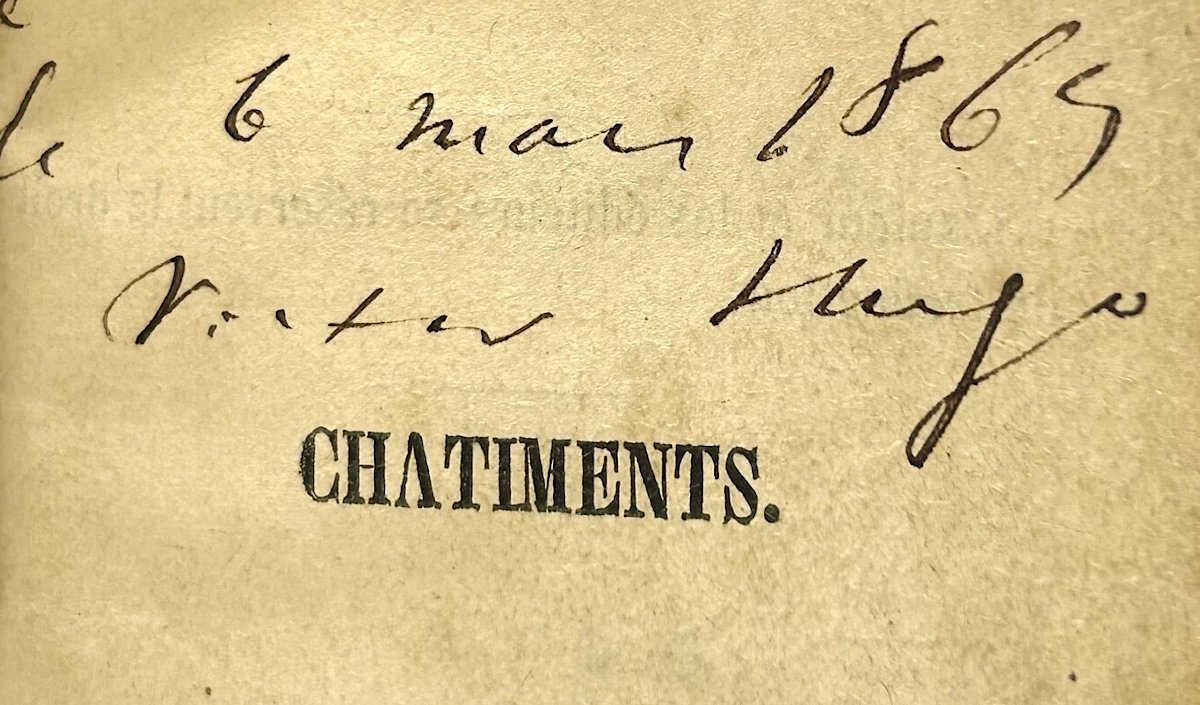 le 6 mars 1869
Victor Hugo
CHATIMENTS.